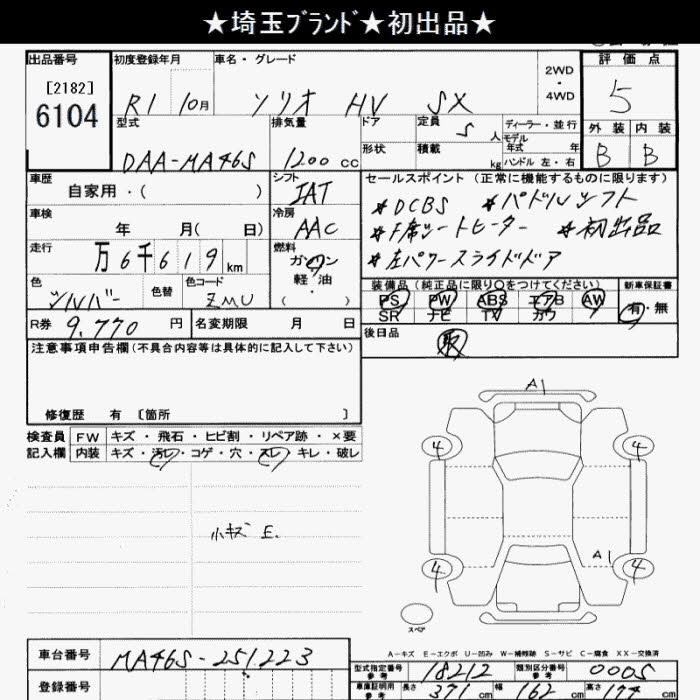 ★埼玉ﾌﾞﾗﾝﾄﾞ★初出品★
出品番号 初度登録年月 車名・グレード 2WD ・ 4WD 評価点
[2182]
6104
R1 10月 ソリオ HV SX 5
型式 排気量 ドア 定員 5 人 ディーラー・並行 外装 内装
DAA-MA46S 1200 cc 形状 積載 kg モデル年式 年 ハンドル 左・右 B B
車歴 シフト セールスポイント (正常に機能するものに限ります)
自家用・( ) IAT
＊DCBS ＊パドルシフト
車検 年 月( 日) 冷房 AAC
＊F席シートヒーター ＊初出品
走行 万6千619km 燃料 ガソリン 軽・油 ・( )
＊左パワースライドドア
色 色替 色コード 装備品 (純正品に限り〇をつけてください) 新車保証書
シルバー ZMU PS PW ABS エアB AW 有・無
SR ナビ TV カワ
R券 9,770 円 名変期限 月 日 後日品
取
注意事項申告欄 (不具合内容等は具体的に記入して下さい)
修復歴 有 〔箇所 〕
検査員 FW キズ・飛石・ヒビ割・リペア跡・×要
記入欄 内装 キズ・汚レ・コゲ・穴・スレ・キレ・破レ
小キズ E.
A1
4 4
A1
4 4
スペア
A-キズ E-エクボ U-凹み W-補修跡 S-サビ C-腐食 XX-交換済
車台番号 MA46S-251223
型式指定番号 参考 18212 類別区分番号 参考 0005
登録番号 車庫証明用 参考 長さ 371 cm 幅 162 cm 高さ 174 cm